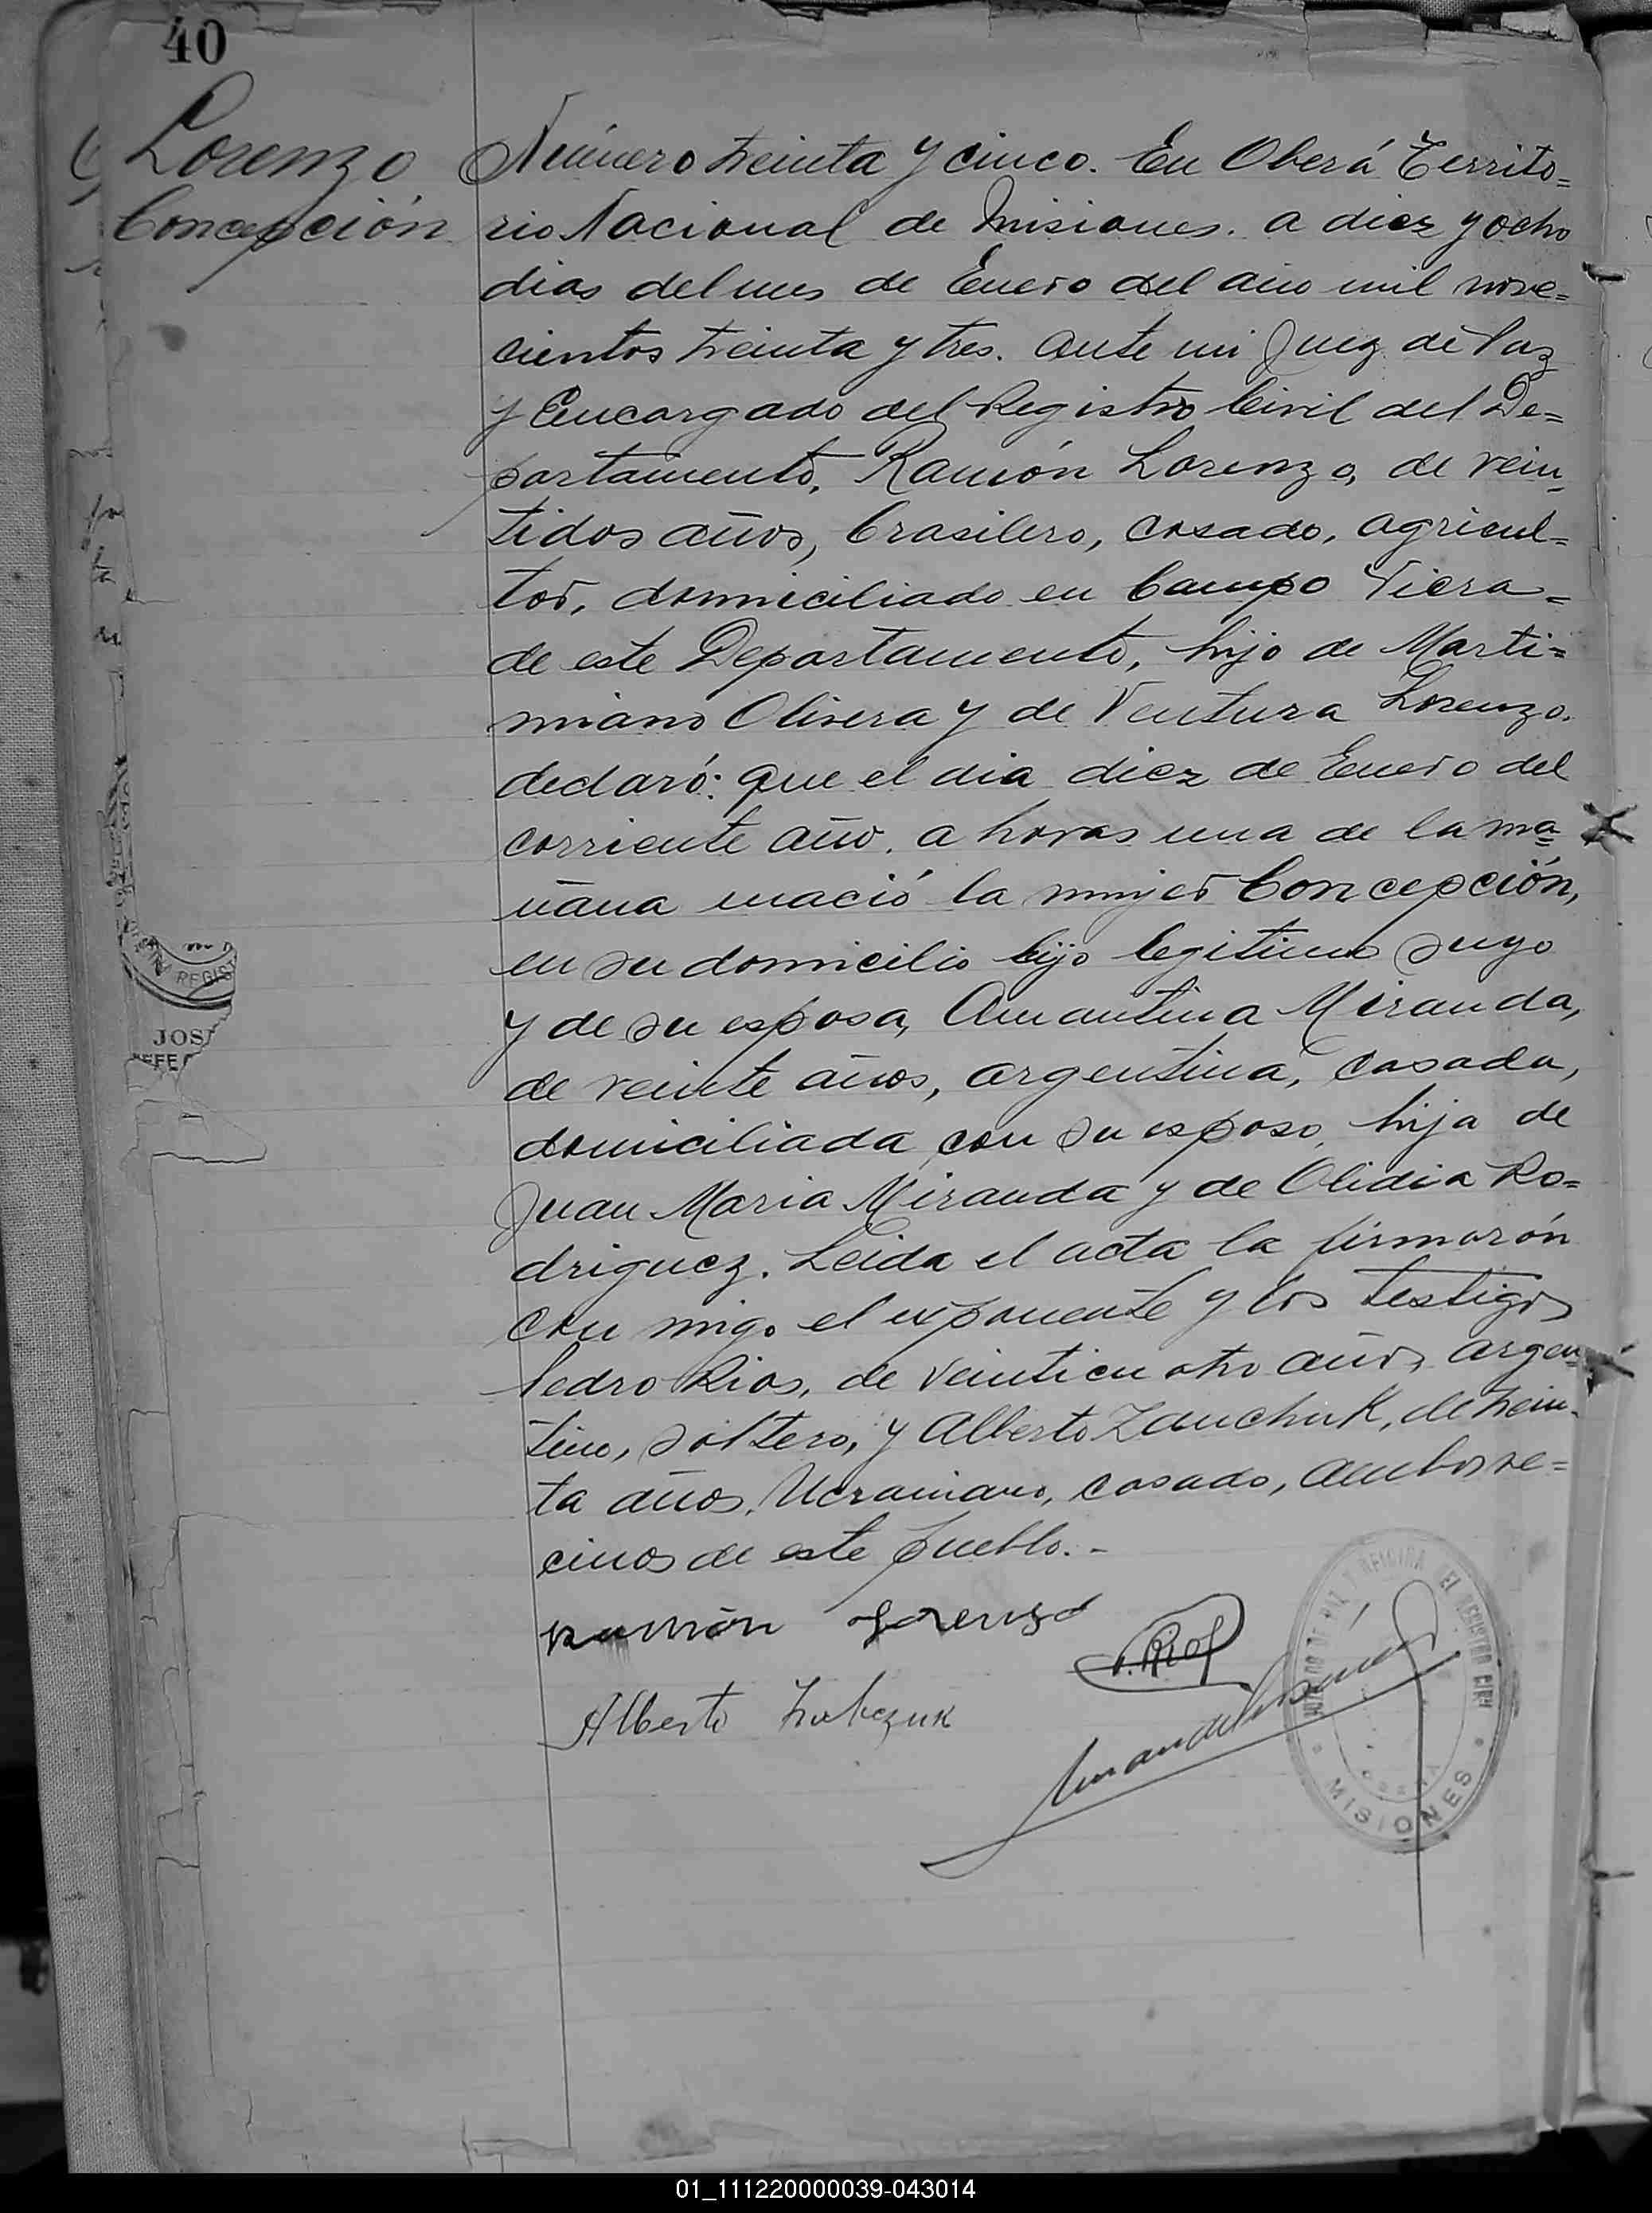 40
Lorenzo
Concepción
Número treinta y cinco. En Oberá Territo=
rio Nacional de Misiones. a diez y ocho
dias del mes de Enero del año mil nove=
cientos treinta y tres. ante mi Juez de Paz
y Encargado del Registro Civil del De=
partamento, Ramón Lorenzo, de vein
tidos años, brasilero, casado, agricul=
tor, domiciliado en Campo Viera=
de este Departamento, hijo de Marti=
miano Olivera y de Ventura Lorenzo.
declaró: que el dia diez de Enero del
corriente año, a horas una de la ma=
ñana nació la mujer Concepción,
en su domicilio hijo legitimo suyo
y de su esposa, Amantina Miranda,
de veinte años, argentina, casada,
domiciliada con su esposo, hija de
Juan Maria Miranda y de Olidia Ro=
driguez. Leida el acta la firmarón
con migo el exponente y los testigos
Pedro Rios, de veinticuatro años, argen
tino, soltero, y Alberto Zauchuk, de trein-
ta años, Ucraniano, casado, ambos ve=
cinos de este pueblo.-
Ramón Lorenzo
P. Rios
Alberto
MISIONES
REGIST
JOS
JEFE
01_111220000039-043014